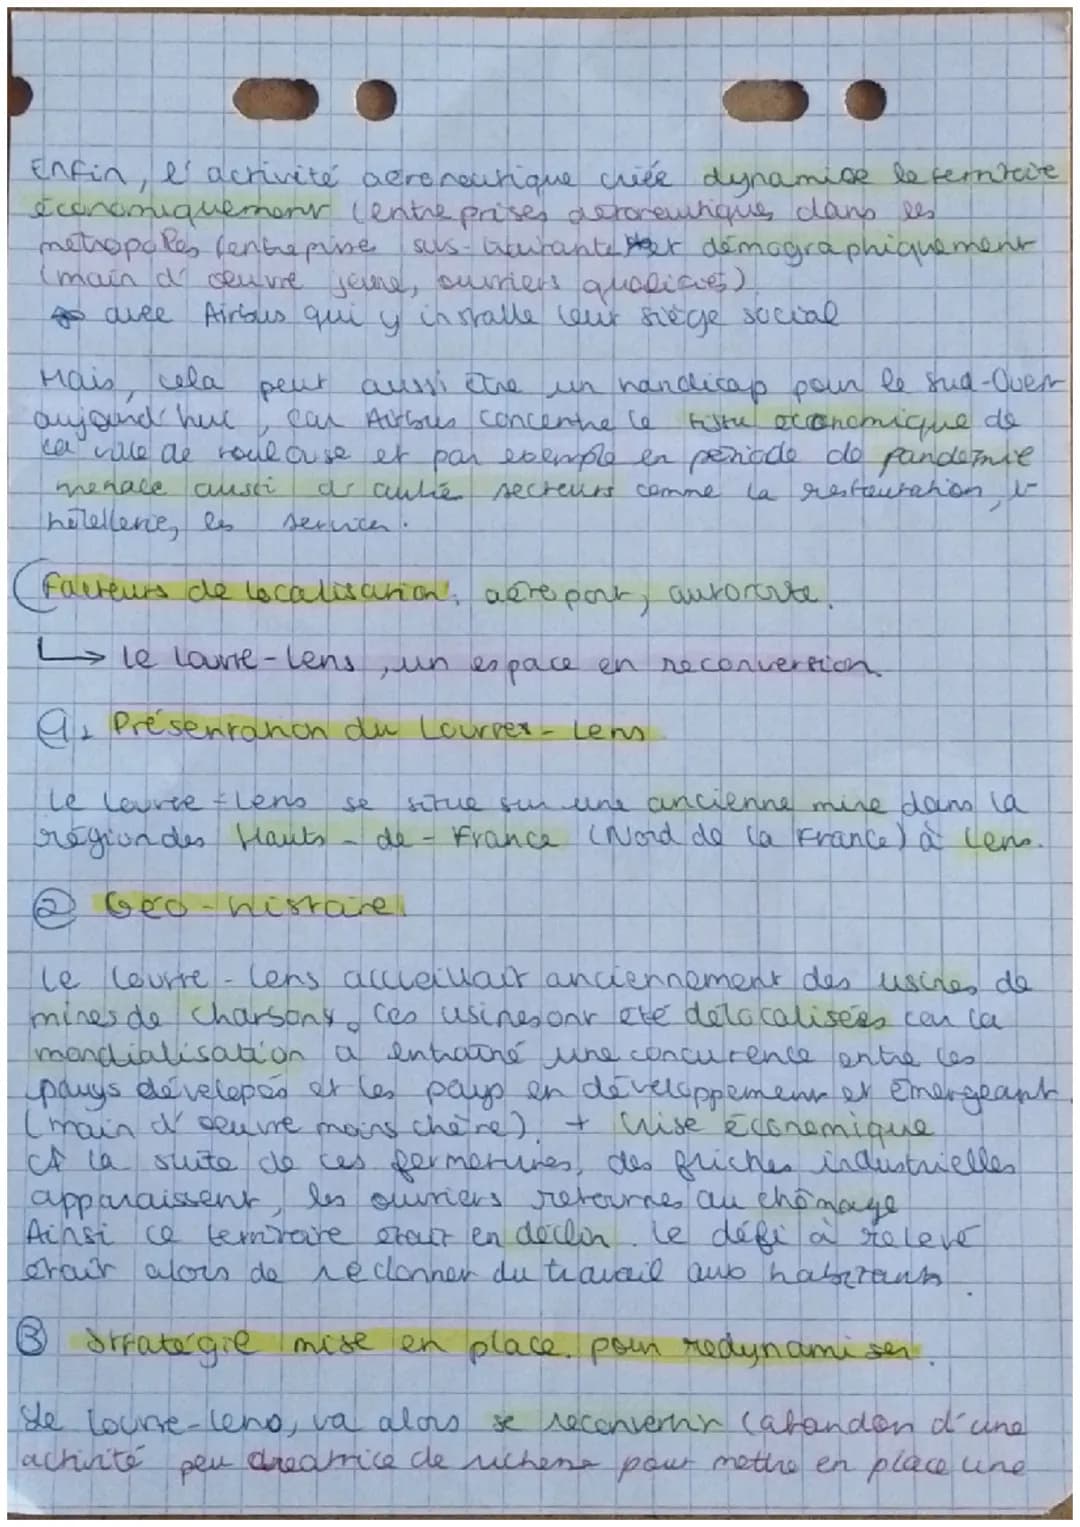 Enfin, l'activité aéronautique créée dynamise le territoire
économiquement (entreprises aéronautiques dans les
métropoles, (entreprise sus-traitante et démographiquement
(main d'œuvre jeune, ouvriers qualifiés)
avec Airbus qui y installe leur siège social
Mais, cela peut aussi être un handicap pour le Sud-Ouest
aujourd'hui, car Airbus concentre le tissu économique de
la ville de Toulouse et par exemple en période de pandémie
menace aussi d' autre secteurs comme la restauration, l'
hôtellerie, les services.
Facteurs de localisation: aéroport, autoroute.
↳ le louvre-lens, un espace en reconversion
1. Présentation du Louvres-Lens
Le louvre-lens se situe sur une ancienne mine dans la
région des Hauts-de-France (Nord de la France) à Lens.
② Géo-histoire
Le louvre-lens accueillait anciennement des usines de
mines de charbons. Ces usines ont été délocalisées car la
mondialisation a entraîné une concurence entre les
pays dévelopés et les pays en développement et émergeant
(main d'œuvre moins chère). + crise économique
A la suite de ces fermetures, des friches industrielles
apparaissent, les ouvriers retournes au chômage
Ainsi ce territoire était en déclin. Le défi à relevé
était alors de redonner du travail aux habitants.
③ Stratégie mise en place pour redynamiser.
Le louvre-lens, va alors se reconvertir (abandon d'une
activité peu créatrice de richesse pour mettre en place une